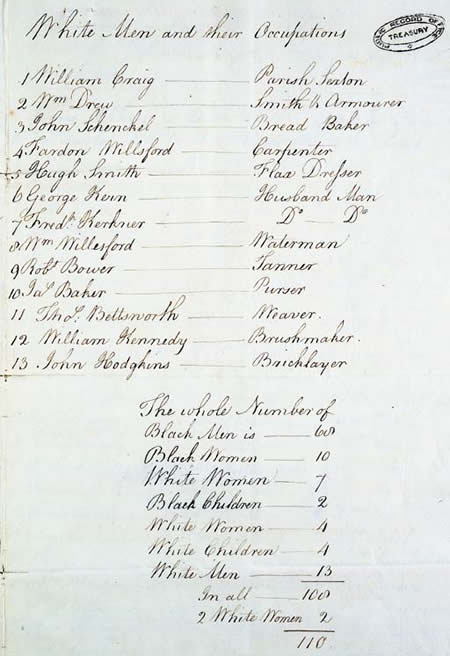 White Men and their Occupations
PUBLIC RECORD OFFICE
TREASURY
1 William Craig — Parish Sexton
2 Wm Drew — Smith & Armourer
3 John Schenckel — Bread Baker
4 Fardon Willsford — Carpenter
5 Hugh Smith — Flax Dresser
6 George Kern — Husband Man
7 Fredk. Kerkner — Do — Do
8 Wm Willesford — Waterman
9 Robt Bower — Tanner
10 Jas. Baker — Purser
11 Thos. Bettsworth — Weaver.
12 William Kennedy — Brushmaker.
13 John Hodgkins — Bricklayer
The whole Number of
Black Men is — 68
Black Women — 10
White Women — 7
Black Children — 2
White Women — 4
White Children — 4
White Men — 13
In all — 108
2 White Women 2
110